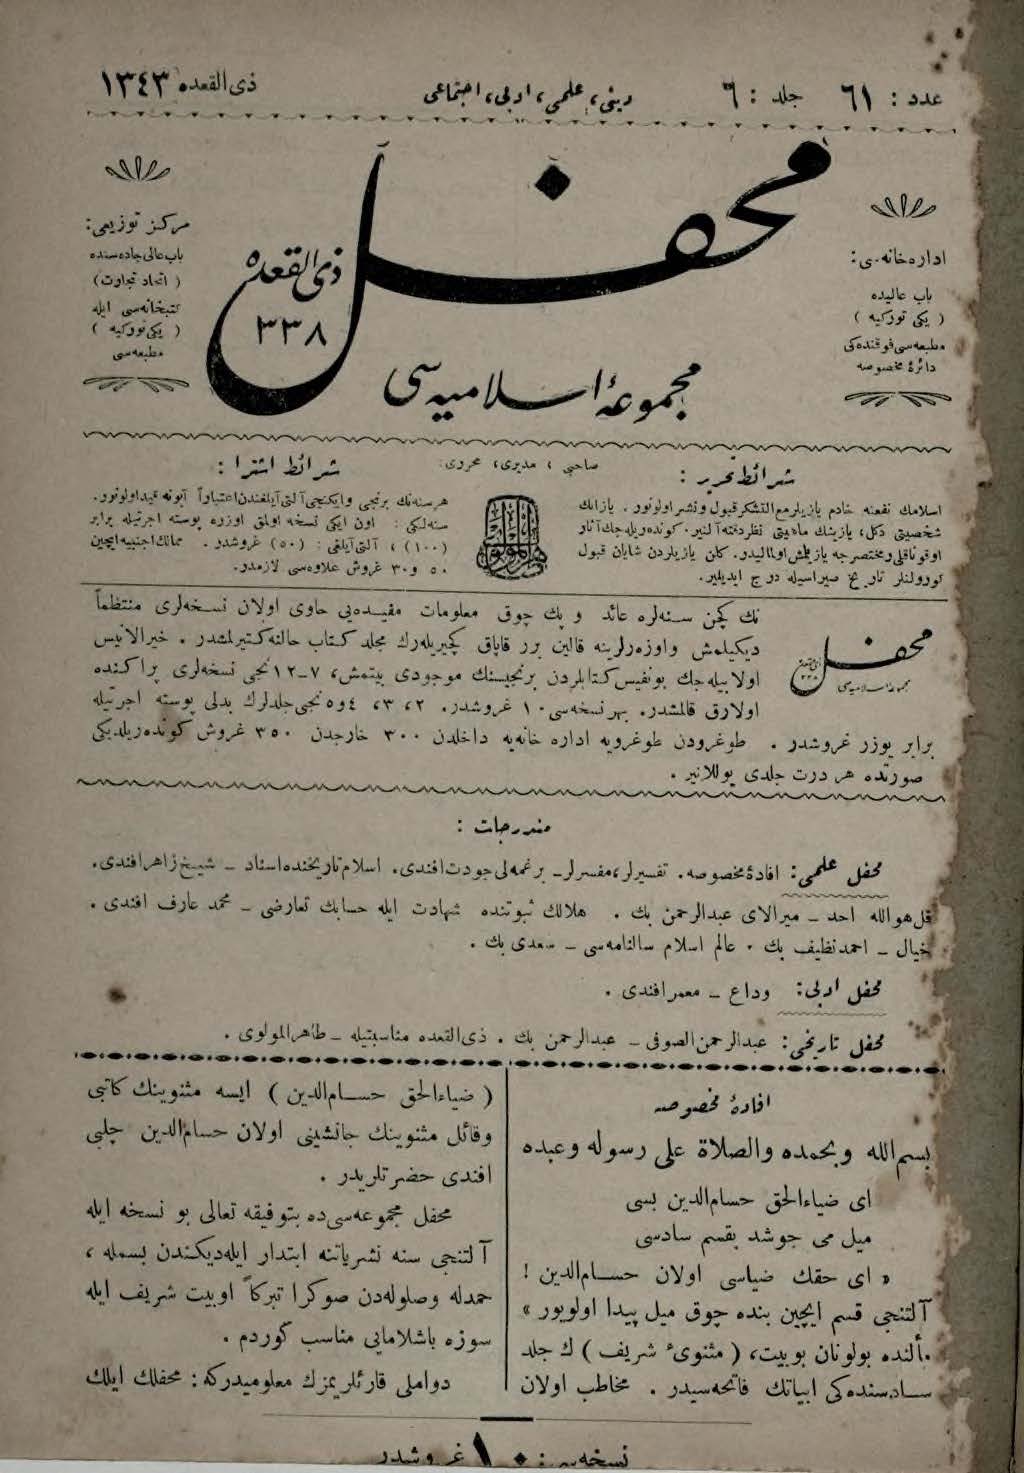 عدد : ٦١ جلد : ٦ دينی، علمی، ادبی، اجتماعی ذی‌القعده ١٣٤٣
محفل
ذی‌القعده
٣٣٨
مجموعهٔ اسلاميه‌سی
اداره‌خانه‌سی :
باب عاليده
( يكی توركيه )
مطبعه‌سی فوقنده‌كی
دائرهٔ مخصوصه
مركز توزيعی :
باب‌عالی جاده‌سنده
( اتحاد تجاوت )
كتبخانه‌سی ايله
( يكی توركيه )
مطبعه‌سی
صاحبی ، مديری، محرری:
شرائط تحرير :
اسلامك نفعنه خادم يازيلر مع‌التشكر قبول و نشر اولونور . يازانك
شخصيتی دكل، يازينك ماهيتی نظردقته آلنير. كوندەريله‌جك آثار
اوقوناقلی و مختصرجه يازيلمش اولماليدر. كلن يازيلردن شايان قبول
كورولنلر تاريخ صيراسيله درج ايديلير.
شرائط اشترا :
هرسنه‌نك برنجی و ايكنجی آلتی آيلغندن اعتباراً آبونه قيد اولونور.
سنه‌لكی : اون ايكی نسخه اولمق اوزره پوسته اجرتيله برابر
(١٠٠) ، آلتی آيلغی : (٥٠) غروشدر. ممالك اجنبيه ايچين
٥٠ و ٣٠ غروش علاوه‌سی لازمدر.
محفل
ذی‌القعده
٣٣٨
مجموعهٔ اسلاميه‌سی
نك كچن سنه‌لره عائد و پك چوق معلومات مفيده‌يی حاوی اولان نسخه‌لری منتظماً
ديكيلمش و اوزه‌رلرينه قالين برر قاپاق كچيريله‌رك مجلد كتاب حالنه كتيرلمشدر . خيرالانيس
اولابيله‌جك بو نفيس كتابلردن برنجيسنك موجودی بيتمش، ٧-١٢نجی نسخه‌لری پراكنده
اولارق قالمشدر. بهر نسخه‌سی ١٠ غروشدر. ٢، ٣، ٤ و ٥نجی جلدلرك بدلی پوسته اجرتيله
برابر يوزر غروشدر . طوغرودن طوغرويه اداره خانه‌يه داخلدن ٣٠٠ خارجدن ٣٥٠ غروش كونده‌ريلديكی
صورتده هر درت جلدی يوللانير .
مندرجات :
محفل علمی : افادهٔ مخصوصه. تفسيرلر، مفسرلر ـ برغمه‌لی جودت افندی. اسلام تاريخنده اسناد ـ شيخ زاهر افندی.
قل هو الله احد ـ ميرالای عبدالرحمن بك . هلالك ثبوتنده شهادت ايله حسابك تعارضی ـ محمد عارف افندی .
خيال ـ احمد نظيف بك . عالم اسلام سالنامه‌سی ـ سعدی بك .
محفل ادبی : وداع ـ معمر افندی .
محفل تاريخی : عبدالرحمن الصوفی ـ عبدالرحمن بك . ذی‌القعده مناسبتيله ـ طاهرالمولوی .
افادهٔ مخصوصه
بسم‌الله وبحمده والصلاة علی رسوله وعبده
ای ضياءالحق حسام‌الدين بسی
ميل می جوشد بقسم سادسی
« ای حقك ضياسی اولان حسام‌الدين !
آلتنجی قسم ايچين بنده چوق ميل پيدا اولويور »
مألنده بولونان بو بيت، ( مثنویٔ شريف ) ك جلد
سادسنده‌كی ابياتك فاتحه‌سيدر . مخاطب اولان
( ضياءالحق حسام‌الدين ) ايسه مثنوينك كاتبی
وقائل مثنوينك جانشينی اولان حسام‌الدين چلبی
افندی حضرتلريدر .
محفل مجموعه‌سی‌ده بتوفيقه تعالی بو نسخه ايله
آلتنجی سنه نشرياتنه ابتدار ايله‌ديكندن بسمله ،
حمدله وصلوله‌دن صوكرا تبركاً او بيت شريف ايله
سوزه باشلامايی مناسب كوردم .
دواملی قارئلريمزك معلوميدركه : محفلك ايلك
نسخه‌سی : ١٠ غروشدر